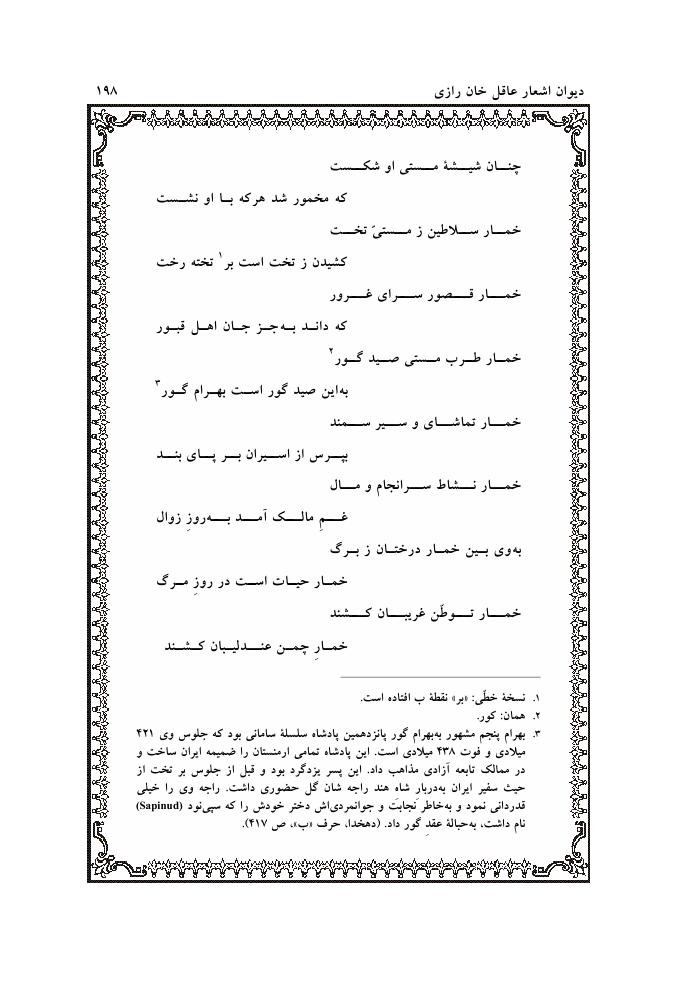 دیوان اشعار عاقل خان رازی ۱۹۸
چنان شیشهٔ مستی او شکست
که مخمور شد هرکه با او نشست
خمار سلاطین ز مستیّ تخت
کشیدن ز تخت است بر۱ تخته رخت
خمار قصور سرای غرور
که داند به‌جز جان اهل قبور
خمار طرب مستی صید گور۲
به‌این صید گور است بهرام گور۳
خمار تماشای و سیر سمند
بپرس از اسیران بر پای بند
خمار نشاط سرانجام و مال
غمِ مالک آمد به‌روزِ زوال
به‌وی بین خمار درختان ز برگ
خمار حیات است در روزِ مرگ
خمار توطّن غریبان کشند
خمارِ چمن عندلیبان کشند
۱. نسخهٔ خطّی: «بر» نقطهٔ ب افتاده است.
۲. همان: کور.
۳. بهرام پنجم مشهور به‌بهرام گور پانزدهمین پادشاه سلسلهٔ سامانی بود که جلوس وی ۴۲۱
میلادی و فوت ۴۳۸ میلادی است. این پادشاه تمامی ارمنستان را ضمیمه ایران ساخت و
در ممالک تابعه آزادی مذاهب داد. این پسر یزدگرد بود و قبل از جلوس بر تخت از
حیث سفیر ایران به‌دربارِ شاهِ هند راجه شان گل حضوری داشت. راجه وی را خیلی
قدردانی نمود و به‌خاطر نجابت و جوانمردی‌اش دختر خودش را که سپی‌نود (Sapinud)
نام داشت، به‌حبالهٔ عقدِ گور داد. (دهخدا، حرف «ب»، ص ۴۱۷).